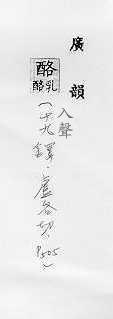 廣韻
酪
酪乳
入聲
(十九鐸·盧各切·P.505)